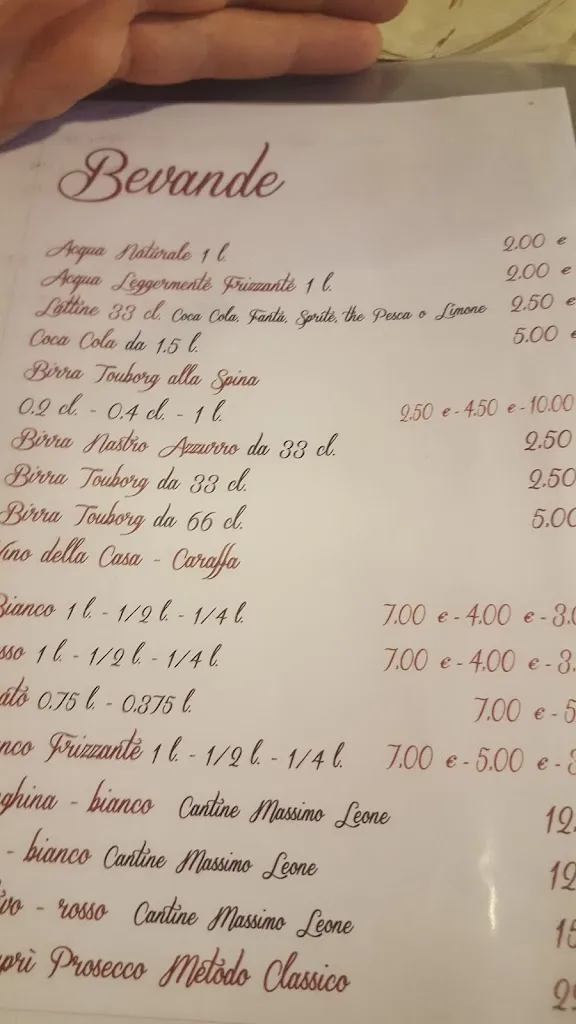 Bevande
Acqua Naturale 1 l. 2.00 e
Acqua Leggermente Frizzante 1 l. 2.00 e
Lattine 33 cl. Coca Cola, Fanta, Sprite, the Pesca o Limone 2.50 e
Coca Cola da 1.5 l. 5.00 e
Birra Touborg alla Spina
0.2 cl. - 0.4 cl. - 1 l. 2.50 e - 4.50 e - 10.00
Birra Nastro Azzurro da 33 cl. 2.50
Birra Touborg da 33 cl. 2.50
Birra Touborg da 66 cl. 5.00
Vino della Casa - Caraffa
Bianco 1 l. - 1/2 l. - 1/4 l. 7.00 e - 4.00 e - 3.0
sso 1 l. - 1/2 l. - 1/4 l. 7.00 e - 4.00 e - 3.
ato 0.75 l. - 0.375 l. 7.00 e - 5
nco Frizzante 1 l. - 1/2 l. - 1/4 l. 7.00 e - 5.00 e - 3
ghina - bianco Cantine Massimo Leone 12.
- bianco Cantine Massimo Leone 12
ivo - rosso Cantine Massimo Leone 15
prì Prosecco Metodo Classico 2